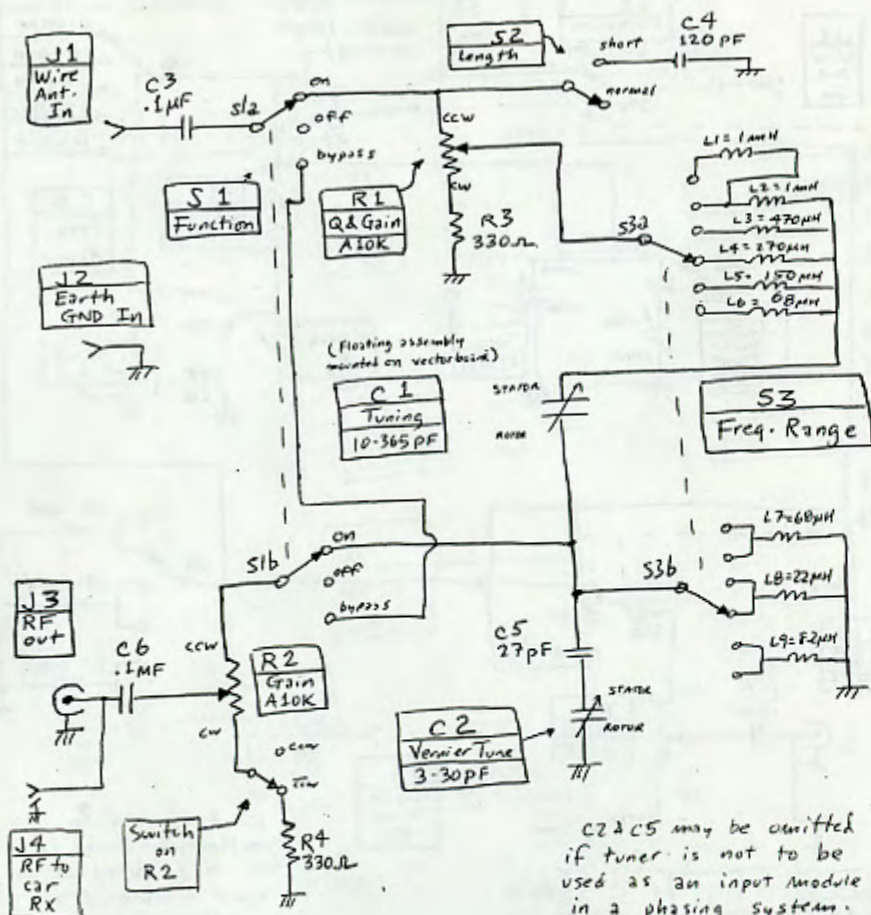 J1
Wire
Ant.
In
C3
.1µF
S1a
on
off
bypass
S2
Length
short
C4
120 pF
normal
S1
Function
R1
Q&Gain
A10K
CCW
CW
R3
330Ω
S3a
L1 = 1mH
L2 = 1mH
L3 = 470µH
L4 = 270µH
L5 = 150µH
L6 = 68µH
J2
Earth
GND In
(Floating assembly
mounted on vectorboard)
C1
Tuning
10-365 pF
STATOR
ROTOR
S3
Freq. Range
S1b
on
off
bypass
S3b
L7=68µH
L8=22µH
L9=8.2µH
J3
RF
out
C6
.1MF
CCW
CW
R2
Gain
A10K
C5
27pF
STATOR
ROTOR
C2
Vernier Tune
3-30pF
ccw
ccw
Switch
on
R2
R4
330Ω
J4
RF to
car
Rx
C2 & C5 may be omitted
if tuner is not to be
used as an input module
in a phasing system.